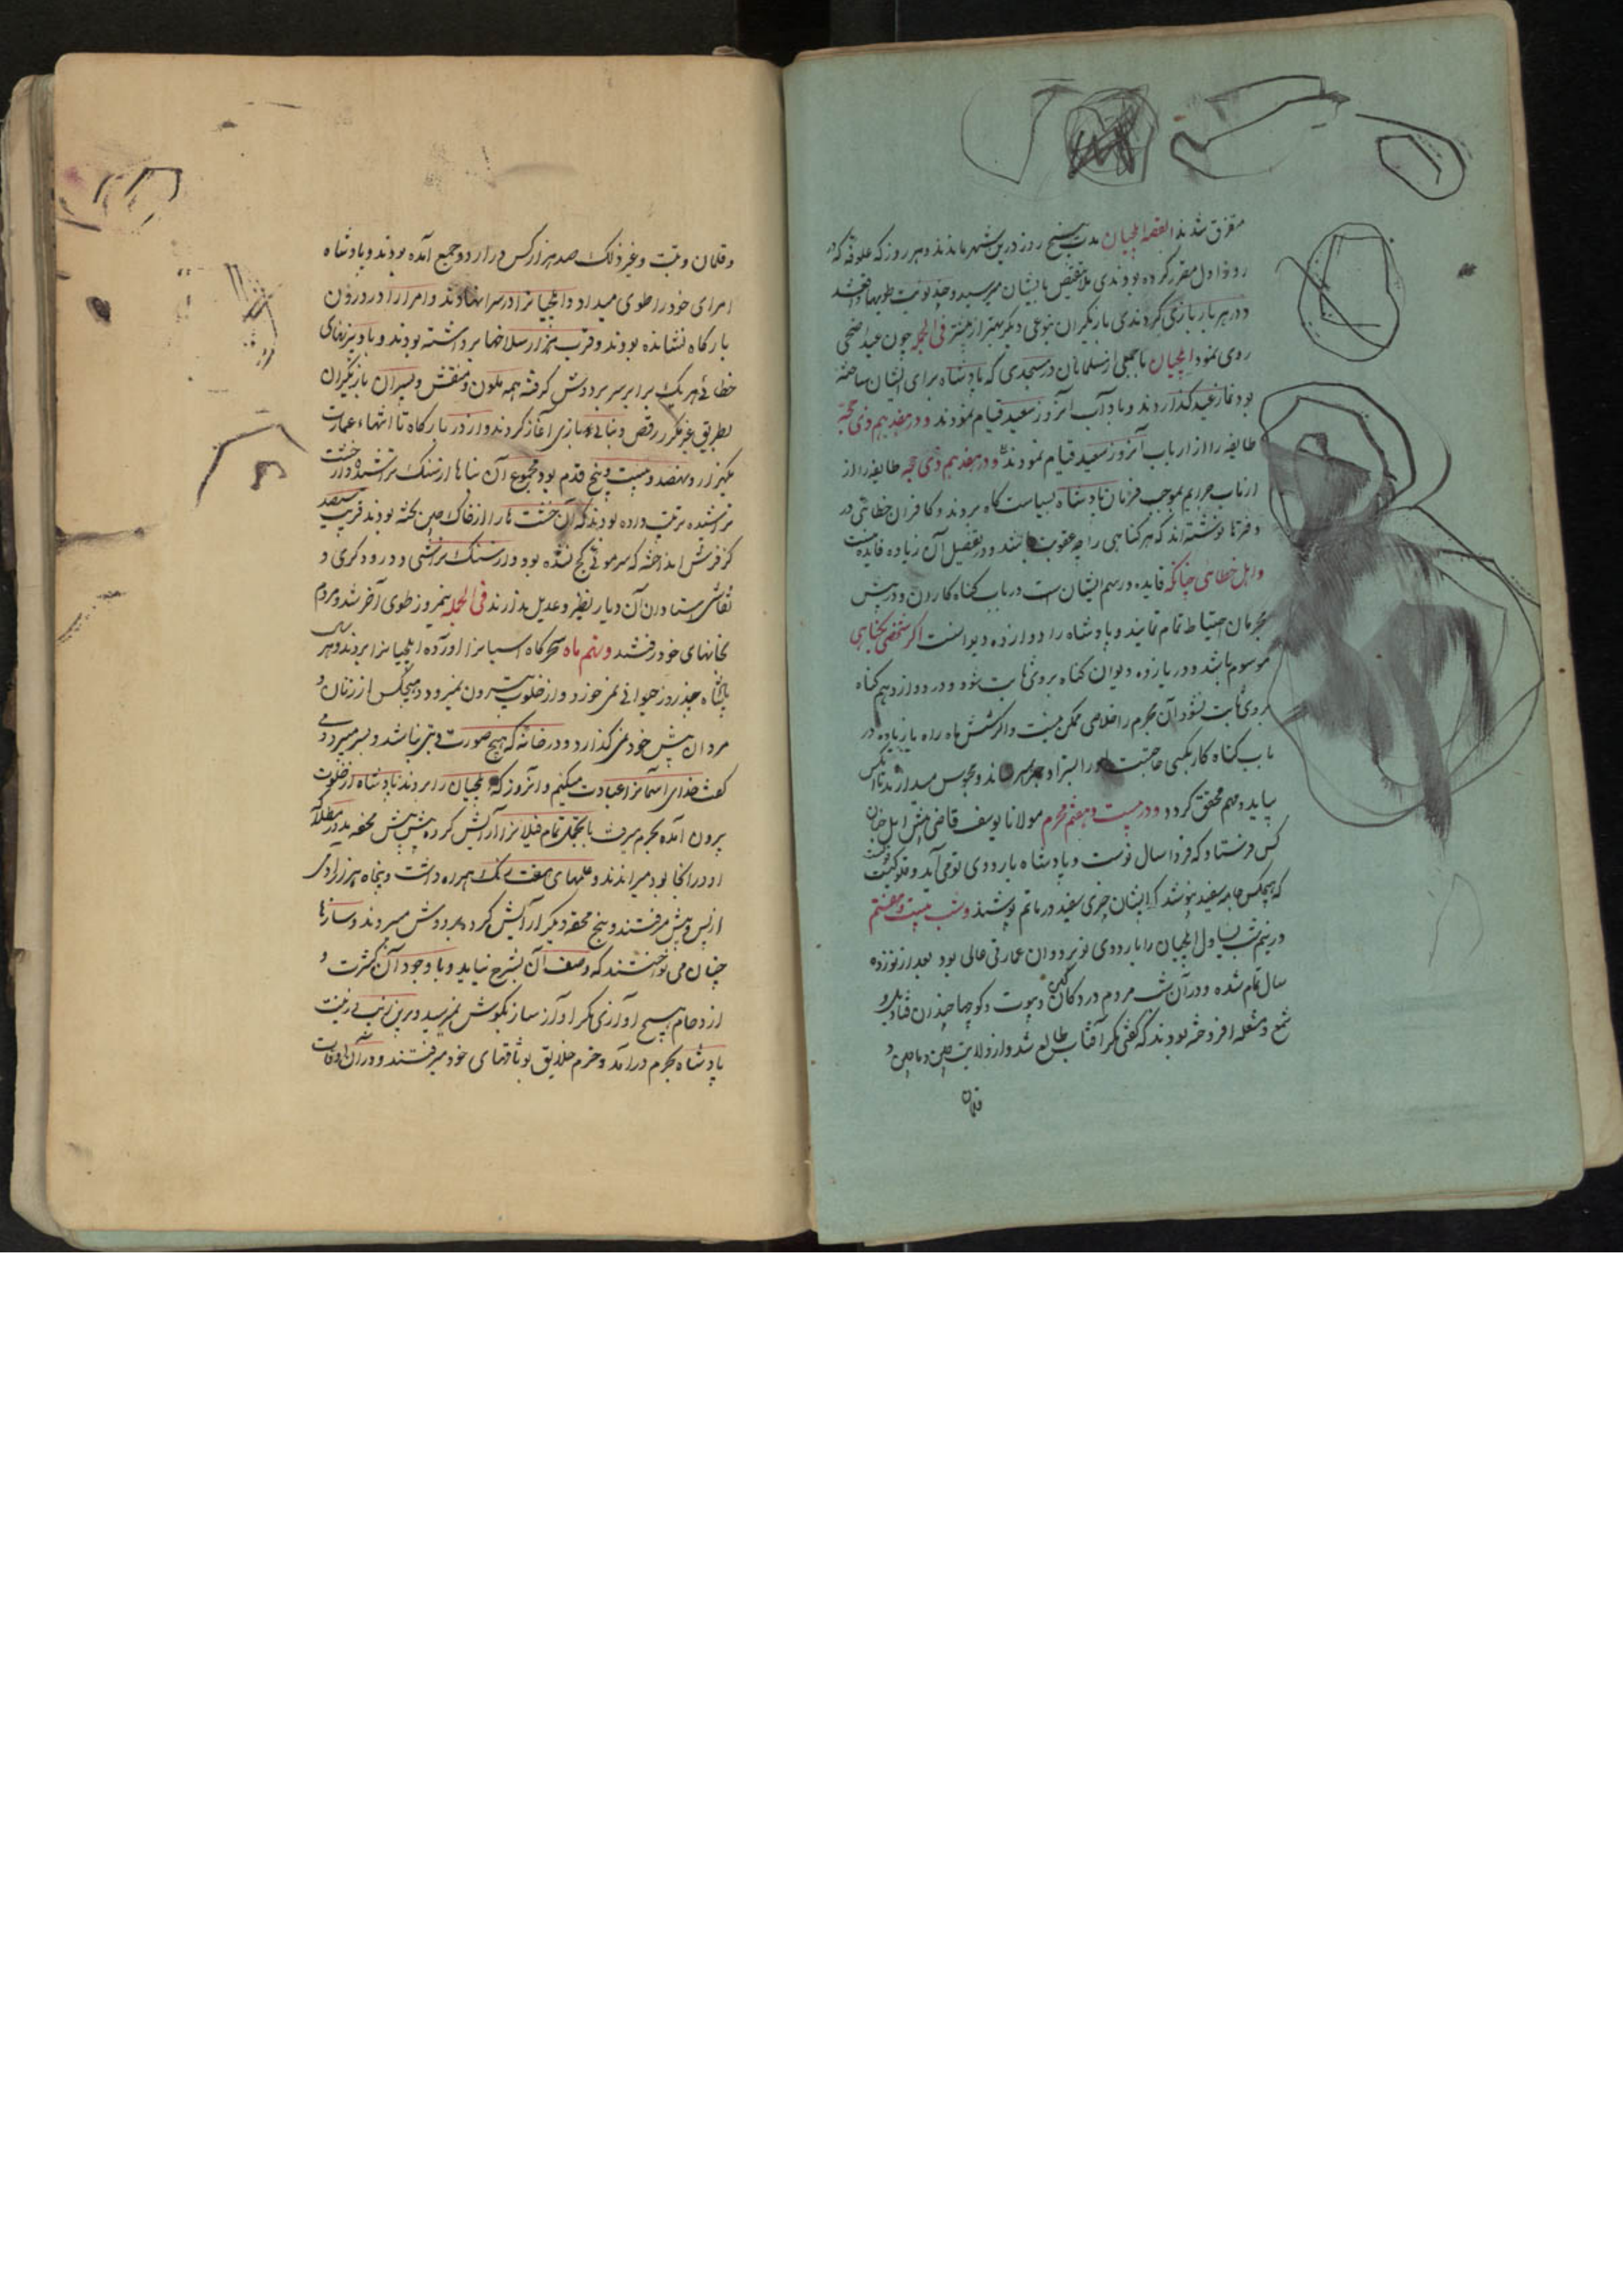 متفرق شدند القصه ایلچیان مدت پنج روز درین شهر ماندند و هر روز که علوفه که در
روز اول مقرر کرده بودندی بلا نقیص بایشان میرسید و چند نوبت طویها دادند
و در هر بار بازی کردندی بازیگران بنوعی دیگر بهتر از پیشتر فی الجمله چون عید اضحی
روی نمود ایلچیان با جمعی از مسلمانان در مسجدی که پادشاه برای ایشان ساخته
بود نماز عید گذاردند و باداب آنروز سعید قیام نمودند و در هفدهم ذی حجه
طایفه را از ارباب آنروز سعید قیام نمودند و در هفدهم ذی حجه طایفه را از
ارباب جرایم بموجب فرمان پادشاه بسیاست گاه بردند و کافران خطایی در
دفترها نوشته اند که هر گناهی را چه عقوبت باشد و در تفصیل آن زیاده فایده نیست
و اهل خطای چنانکه قاعده و رسم ایشان است در باب گناه کاران و در پرسش
مجرمان احتیاط تمام نمایند و پادشاه را دوازده دیوانست اگر شخصی بگناهی
موسوم باشد و در یازده دیوان گناه بروی ثابت شود و در دوازدهم گناه
بروی ثابت نشود آن مجرم را خلاصی ممکن نیست و اگر شش ماه راه یا زیاده در
باب گناه کار بکسی حاجت او را و محبوس میدارند تا آنکس
بیاید و مهم محقق گردد و در بیست و هفتم محرم مولانا یوسف قاضی پیش ایلچیان
کس فرستاد که فردا سال نوست و پادشاه باردوی نو می آید و حکمست
که هیچکس جامه سفید نپوشد که ایشان چیزی سفید در ماتم پوشند و شب بیست و هفتم
در نیم شب یساول ایلچیان را باردوی نو برد و آن عمارتی عالی بود بعد از نوزده
سال تمام شده و در آن شب مردم در دکان و بیوت و کوچها چندان قنادیل و
شمع و مشعله افروخته بودند که گفتی مگر آفتاب طالع شد و از ولایت چین و ماچین و
قلان
و قلان و تبت و غیر ذلک صد هزار کس در اردو جمع آمده بودند و پادشاه
امرای خود را طوی میداد و ایلچیانرا در سرا نهادند و امرا را در درون
بارگاه نشانده بودند و قریب هزار سلاحها برداشته بودند و بادبیزنهای
خطائی هر یک برابر سر بر دوش گرفته همه ملون و منقش و پسران بازیگران
بطریق غیر مکرر رقص و بازی آغاز کردند و از در بارگاه تا انتهاء عمارت
یکهزار و نهصد و بیست و پنج قدم بود مجموع آن بناها از سنگ تراشیده و از خشت
تراشیده ترتیب داده بودند که آن خشت ها را از خاک چین پخته بودند قریب سیصد
گز فرش انداخته که سر موئی کج نشده بود و از سنگ تراشی و درودگری و
نقاشی استادان آن دیار نظیر و عدیل ندارند فی الجمله نیمروز طوی آخر شد و مردم
بخانهای خود رفتند و نهم ماه سحرگاه اسپانرا آورده ایلچیانرا بردند و هر سال
پادشاه چند روز حیوانی نمیخورد و از خلوت بیرون نمیرود و هیچکس از زنان و
مردان پیش خود نمی گذارد و در خانه که هیچ صورت و بتی نباشد و بسر میبرد و می
گفت خدای آسمانرا عبادت میکنیم و آنروز که ایلچیان را بردند پادشاه از خلوت
بیرون آمده بحرم میرفت با تجمل تمام فیلانرا آرایش کرده پیش پیش محفه مدور مطلا که
او در آنجا بود میراندند و علمهای هفت رنگ همراه داشت و پنجاه هزار آدمی
از پس و پیش میرفتند و پنج محفه دیگر آرایش کرده بر دوش میبردند و سازها
چنان می نواختند که وصف آن بشرح نیاید و با وجود آن کثرت و
ازدحام هیچ آوازی مگر آواز ساز بگوش نمیرسید و برین زیب و زینت
پادشاه بحرم درآمد و خرم خلایق بوثاقهای خود میرفتند و در آن اوقات